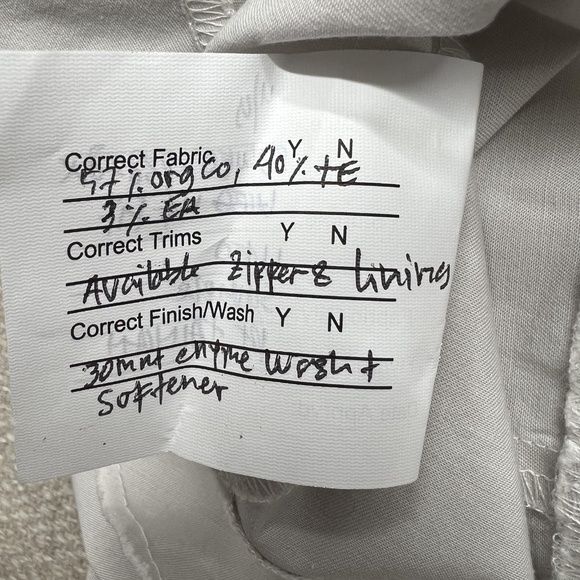 Correct Fabric Y N
57% org co, 40% tE
3% EA
Correct Trims Y N
Available Zipper & linings
Correct Finish/Wash Y N
30mnt enzyme Wash +
Softener